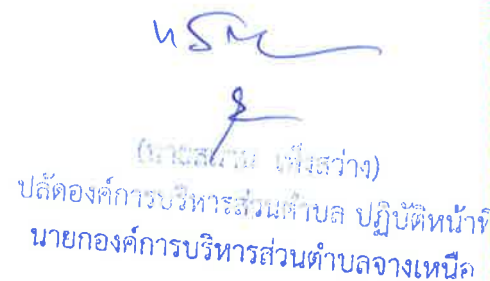 ทราบ
(นาย เพ็งสว่าง)
ปลัดองค์การบริหารส่วนตำบล ปฏิบัติหน้าที่
นายกองค์การบริหารส่วนตำบลจางเหนือ